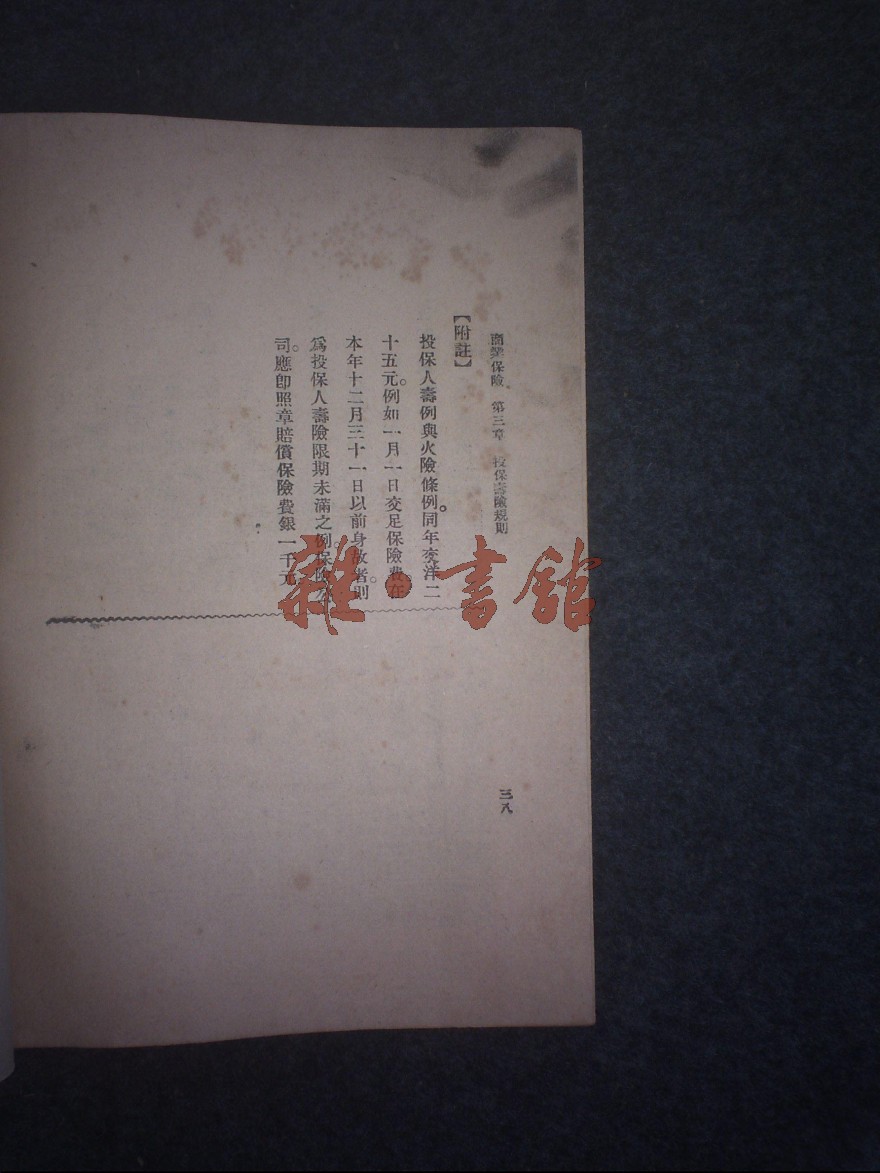 商業保險 第三章 投保壽險規則
【附註】
投保人壽例與火險條例。同年交洋二
十五元。例如一月一日交足保險費。在
本年十二月三十一日以前身故者。則
爲投保人壽險限期未滿之例。保險公
司。應卽照章賠償保險費銀一千元
三八
雜·書館